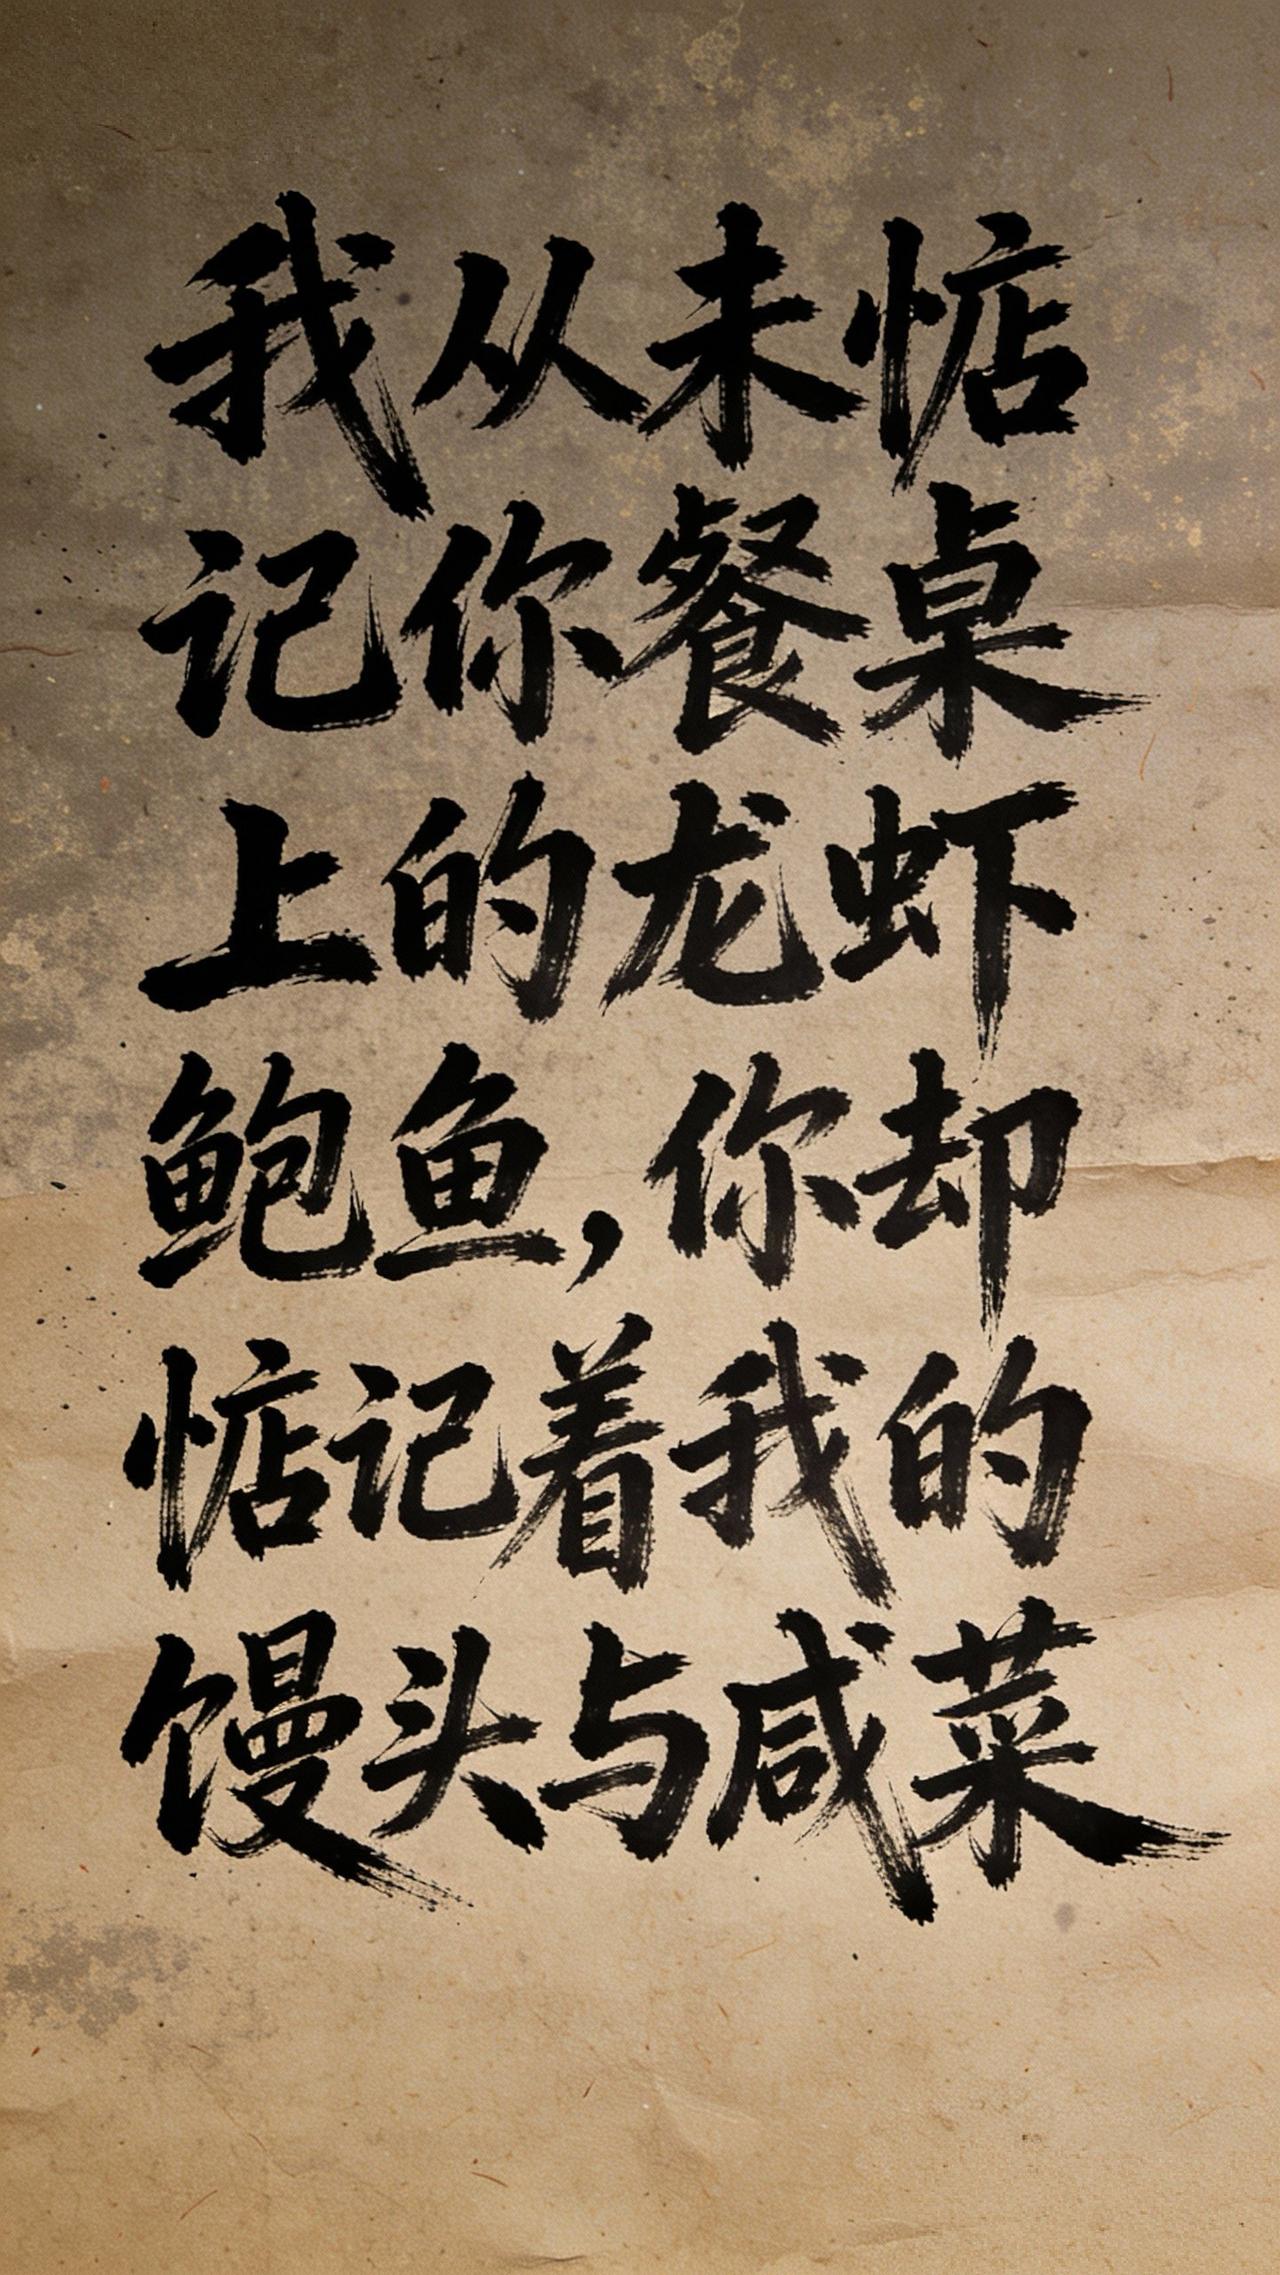 我从未惦
记你餐桌
上的龙虾
鲍鱼，你却
惦记着我的
馒头与咸菜